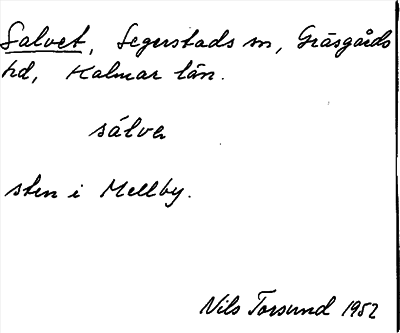 Salvet, Segerstads sn, Gräsgårds
hd, Kalmar län.
sálvet
sten i Mellby.
Nils Torsund 1952